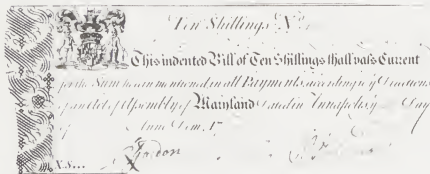 Ten Shillings N.o
This indented Bill of Ten Shillings shall pass Current
for the Sum herein mentioned in all Payments, according to y Directions
of an Act of Assembly of Maryland Dated in Annapolis y Day
of Anno Dom. 17
X.S...
Gordon